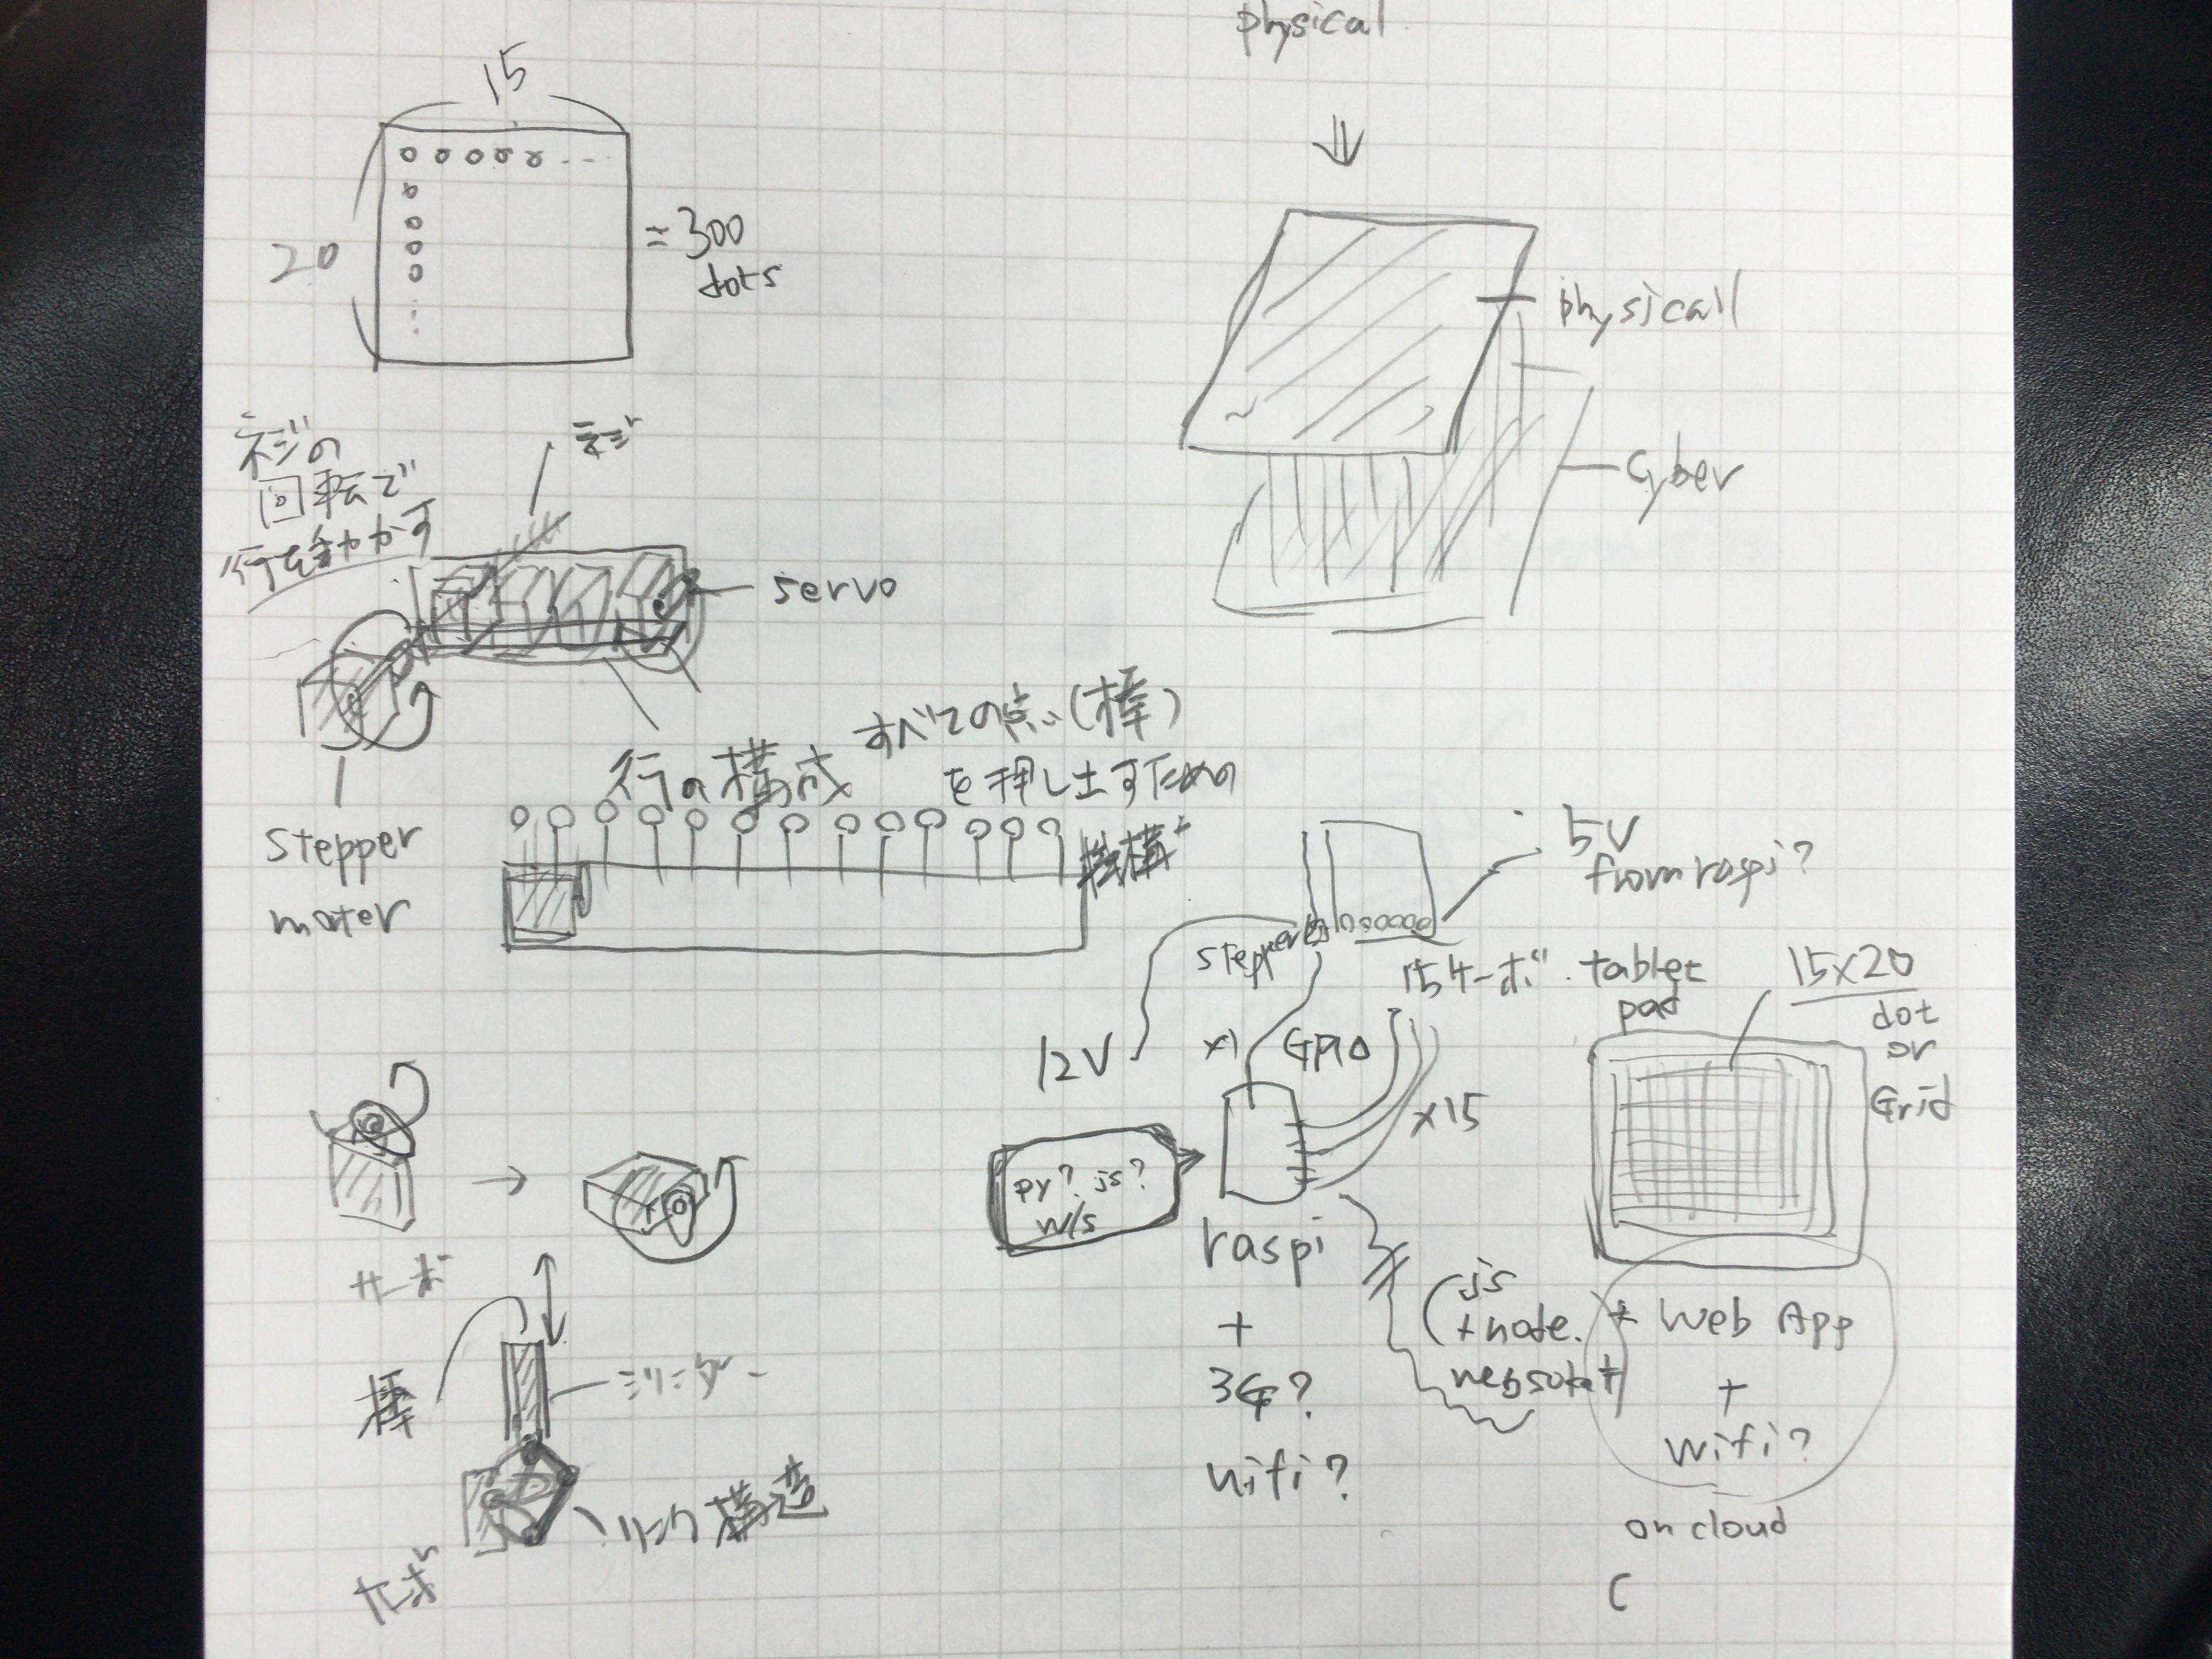 physical
15
20
= 300
dots
ネジの
回転で
行を動かす
ネジ
servo
stepper
moter
行の構成
すべての点(棒)
を押し出すための
機構
physicall
cyber
5V
from raspi?
stepper
15サーボ
12V
x1
GPIO
x15
py? js?
w/s
raspi
+
3G?
wifi?
tablet
pad
15x20
dot
or
Grid
(js
+node.
websoket)
+ Web App
+
wifi?
on cloud
C
サーボ
棒
シリンダー
リンク構造
サーボ